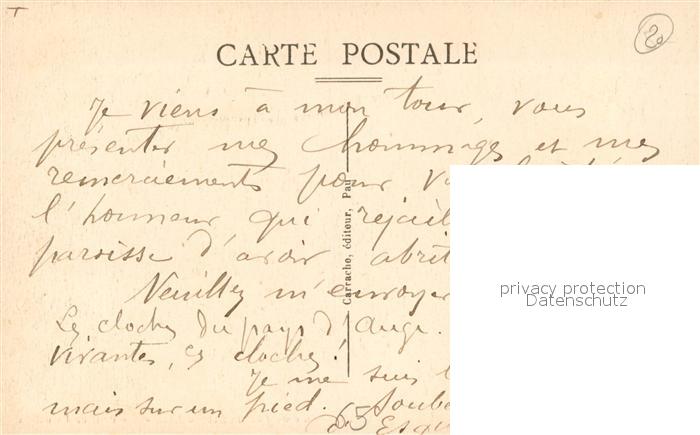 20
CARTE POSTALE
Je viens à mon tour, vous
présenter mes hommages et mes
remerciements pour
l'honneur qui
paroisse d'avoir
Veuillez m'envoyer
Les cloches du pays d'Auge.
vivantes, ces cloches!
Je me suis
mais sur un pied.
Carrache, éditeur, Pau
privacy protection
Datenschutz